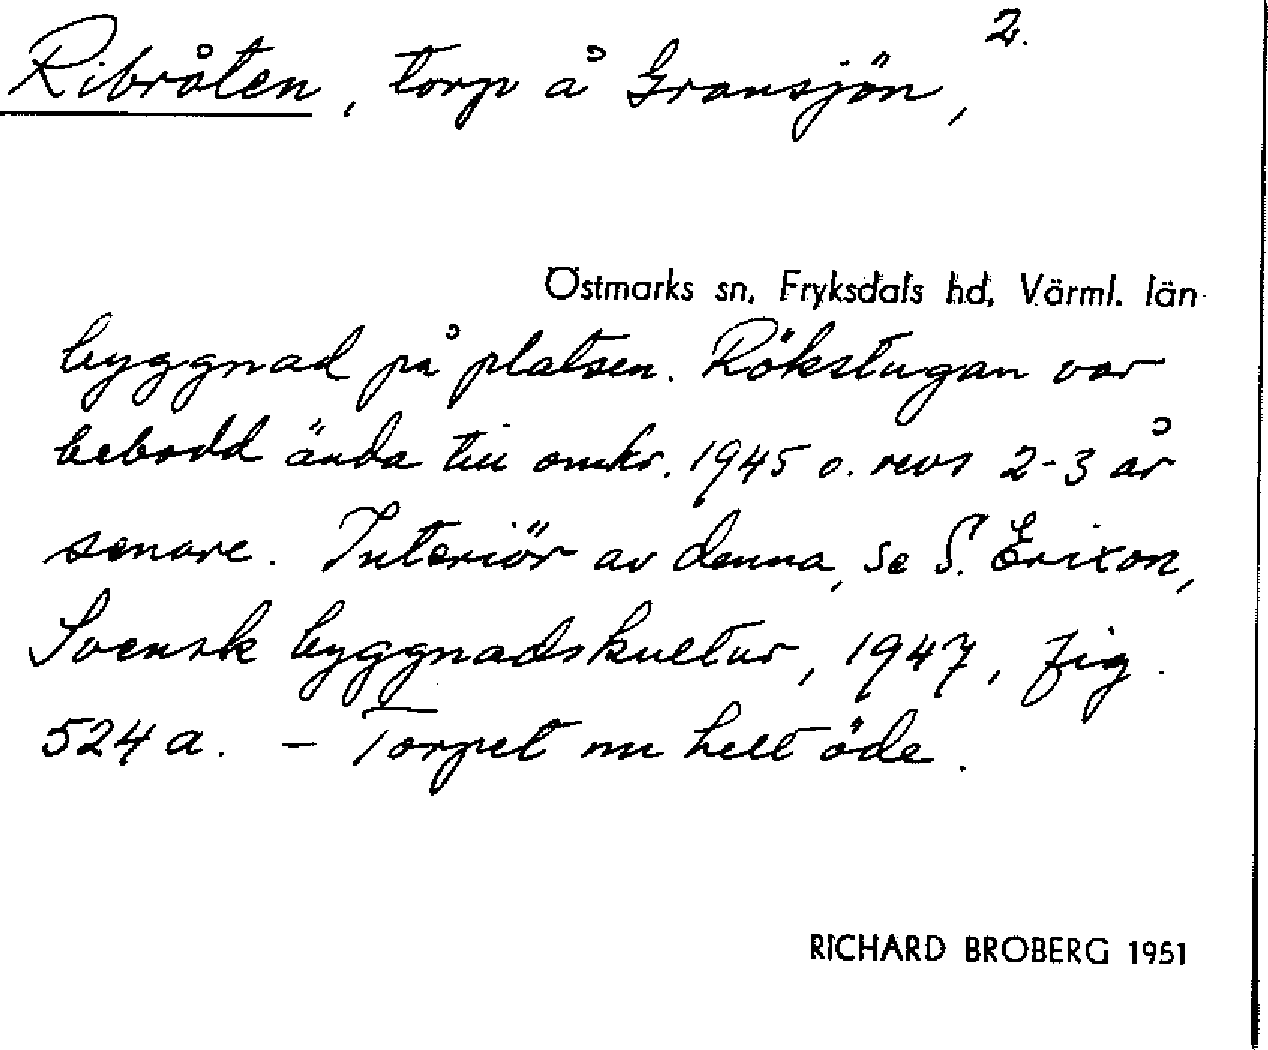 Ribråten, torp å Gransjön, 2.
Östmarks sn, Fryksdals hd, Värml. län
byggnad på platsen. Rökstugan var
bebodd ända till omkr. 1945 o. revs 2-3 år
senare. Interiör av denna, se S. Erixon,
Svensk byggnadskultur, 1947, fig.
524 a. – Torpet nu helt öde.
RICHARD BROBERG 1951